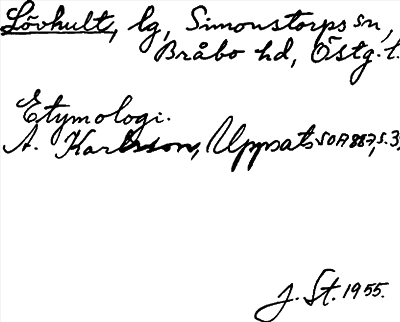 Lövhult, lg, Simonstorps sn,
Bråbo hd, Östg. l.
Etymologi.
A. Karlsson, Uppsats SOA 887, s. 3,
J. St. 1955.